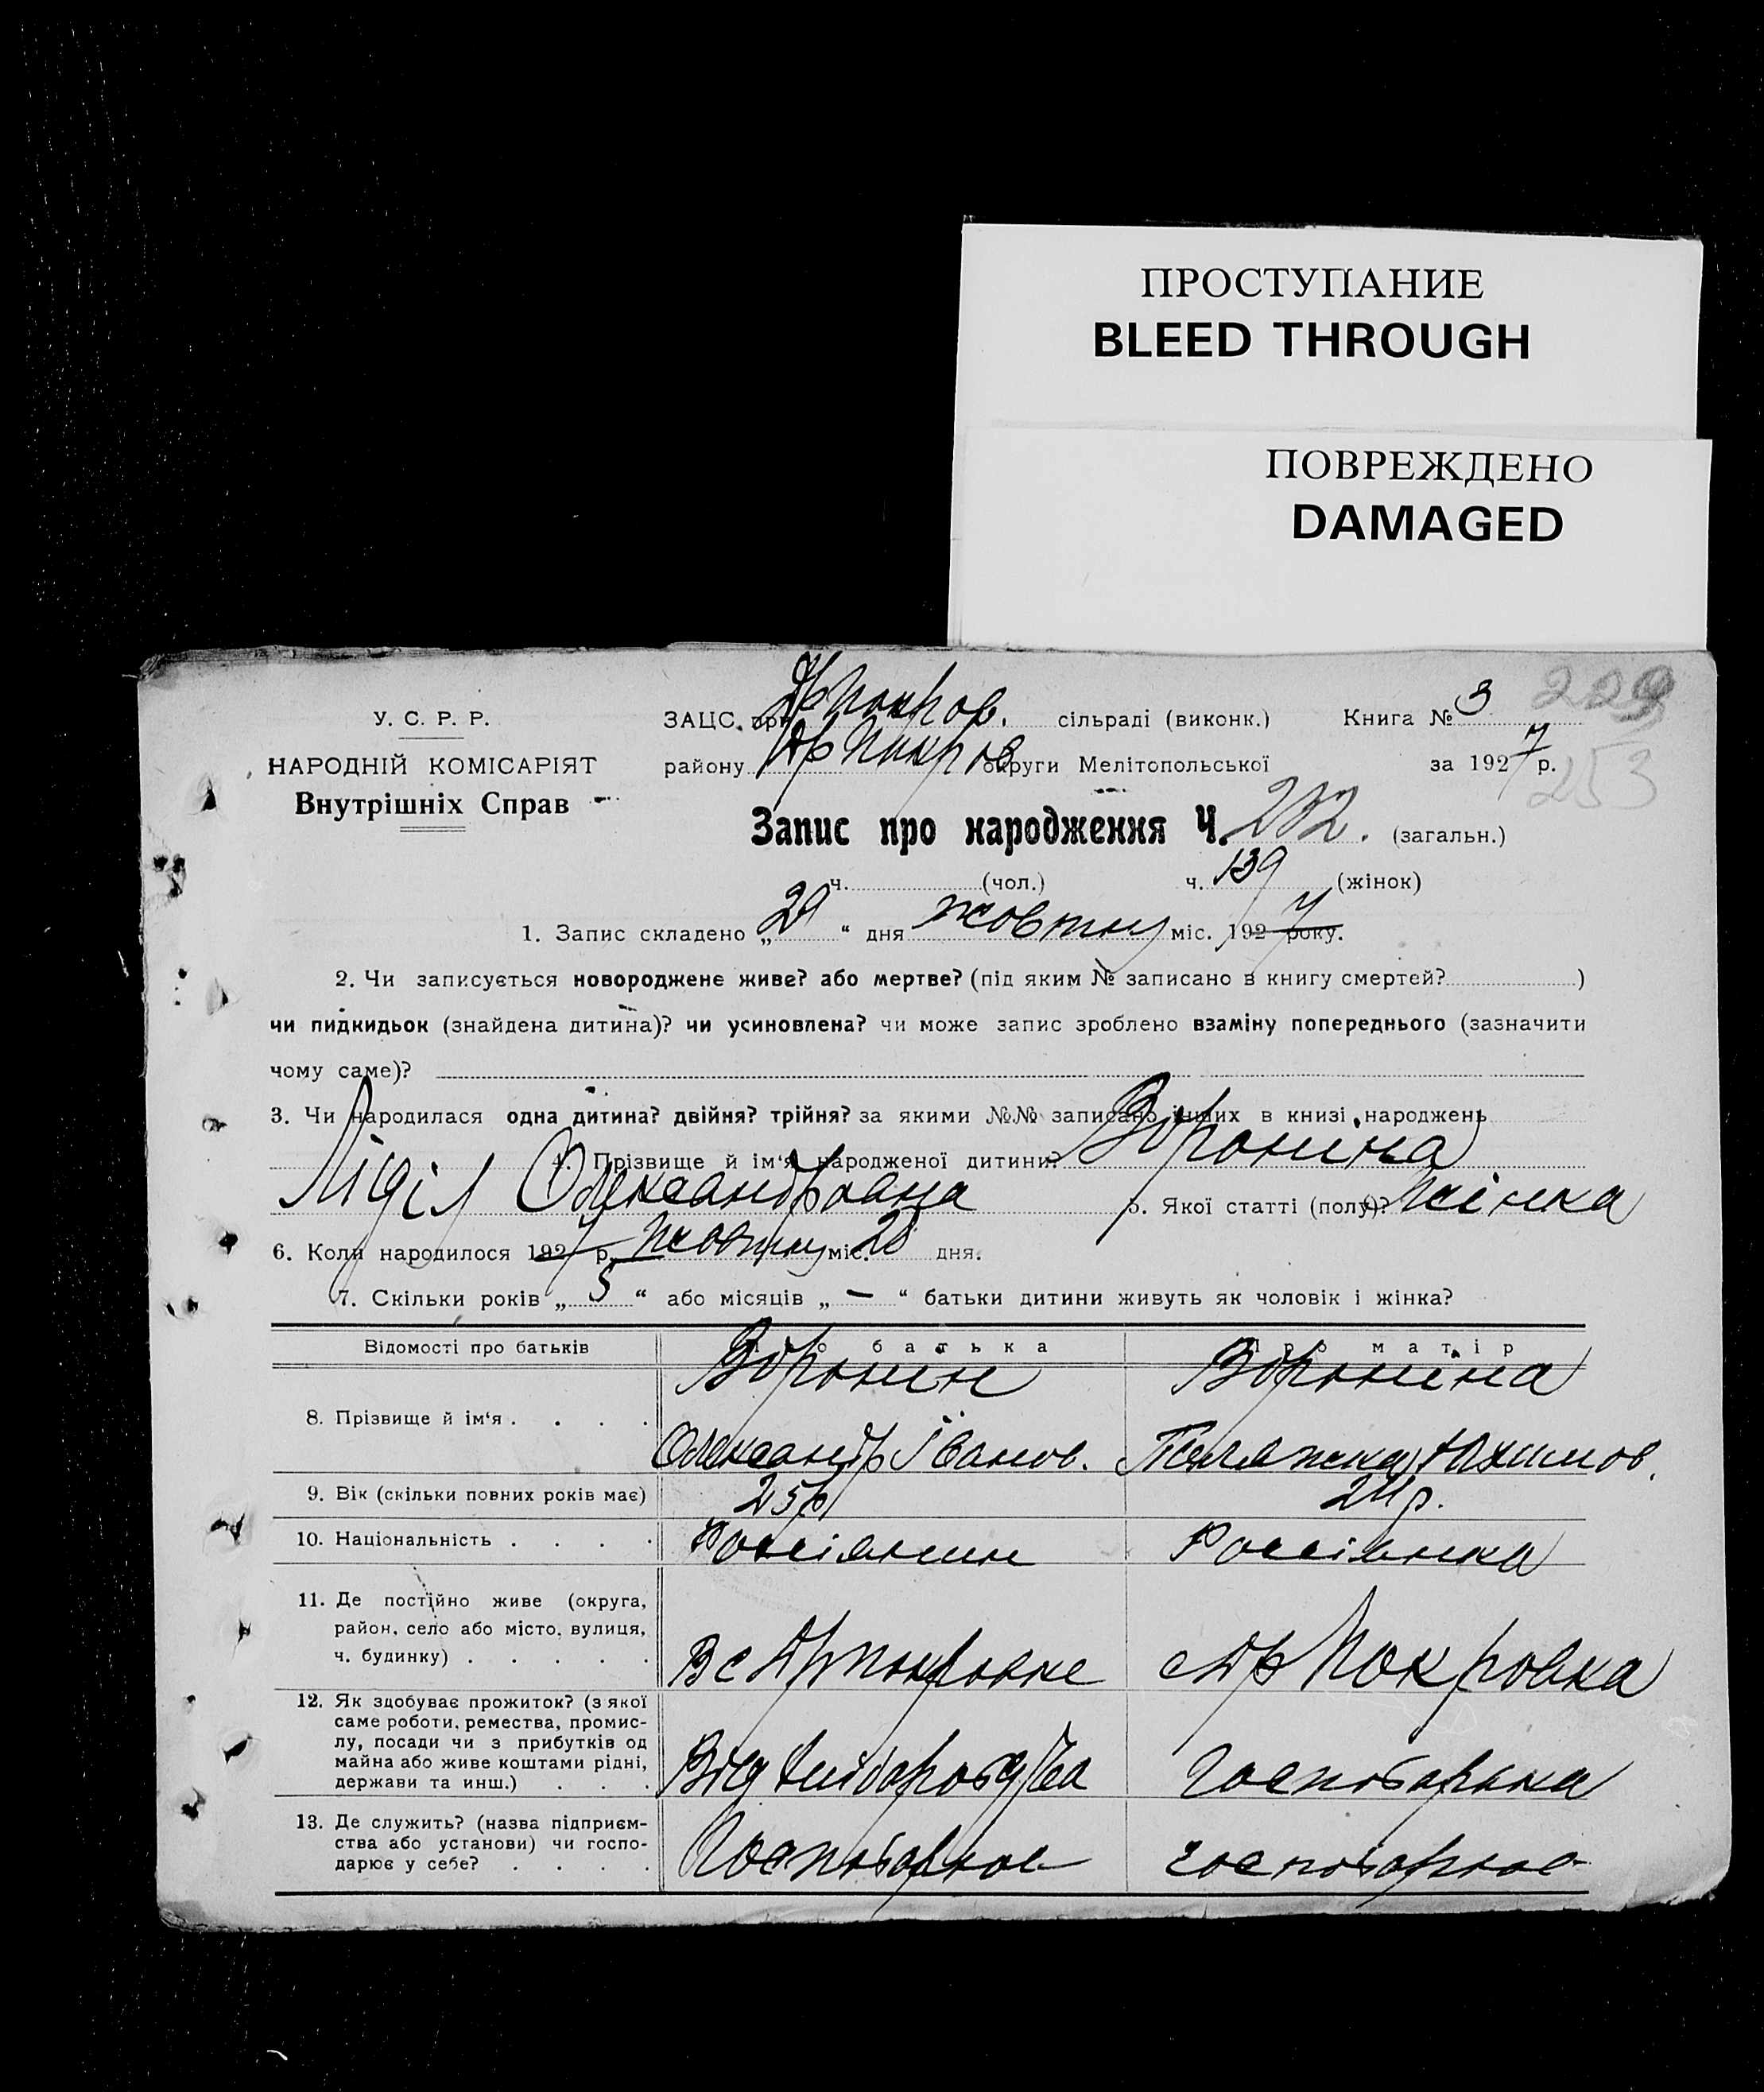 ПРОСТУПАНИЕ
BLEED THROUGH
ПОВРЕЖДЕНО
DAMAGED
У. С. Р. Р.
НАРОДНІЙ КОМІСАРІЯТ
Внутрішніх Справ
ЗАЦС. при Др Покров. сільраді (виконк.) Книга № 3
229
району Др Покров округи Мелітопольської за 1927 р.
253
Запис про народження Ч. 232. (загальн.)
ч. (чол.) ч. 139 (жінок)
1. Запис складено „29“ дня жовтню міс. 1927 року.
2. Чи записується новороджене живе? або мертве? (під яким № записано в книгу смертей? )
чи пидкидьок (знайдена дитина)? чи усиновлена? чи може запис зроблено взаміну попереднього (зазначити
чому саме)?
3. Чи народилася одна дитина? двійня? трійня? за якими №№ записано інших в книзі народжень
4. Прізвище й ім‘я народженої дитини? Вороніна
Лідія Олександровна 5. Якої статті (полу)? Жінка
6. Коли народилося 1927 р. жовтню міс. 20 дня.
7. Скільки років „5“ або місяців „—“ батьки дитини живуть як чоловік і жінка?
Відомості про батьків Про батька Про матір
8. Прізвище й ім‘я . . . . Воронин Вороніна
Олександр Іванов. Пелажка Юхимов.
9. Вік (скільки повних років має) 25р 24р.
10. Національність . . . . Россіянин Россіянка
11. Де постійно живе (округа,
район, село або місто, вулиця,
ч. будинку) . . . . . В с Дрпокровке с Др Покровка
12. Як здобуває прожиток? (з якої
саме роботи, ремества, промис-
лу, посади чи з прибутків од
майна або живе коштами рідні,
держави та инш.) . . . Від Господарка
13. Де служить? (назва підприєм-
ства або установи) чи госпо-
дарює у себе? . . . . Господарює господарює